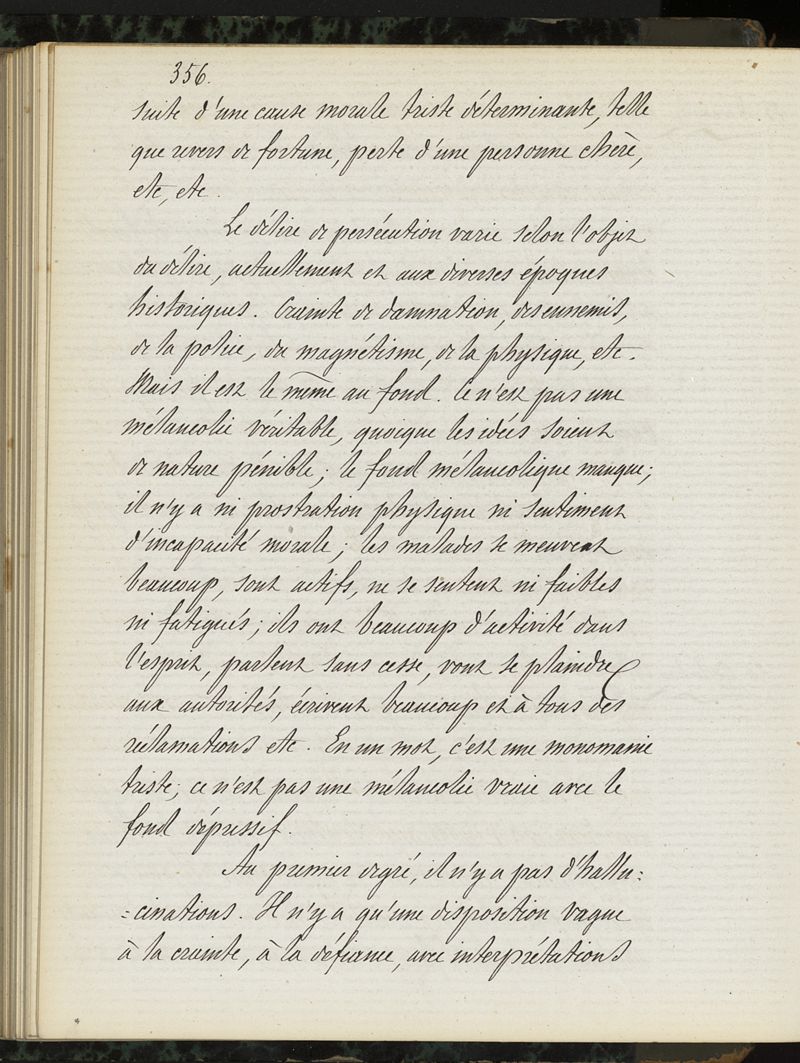 356.
suite d'une cause morale triste déterminante, telle
que revers de fortune, perte d'une personne chère,
etc, etc.
Le délire de persécution varie selon l'objet
du délire, actuellement et aux diverses époques
historiques. Crainte de damnation, des ennemis,
de la police, du magnétisme, de la physique, etc.
Mais il est le même au fond. Ce n'est pas une
mélancolie véritable, quoique les idées soient
de nature pénible; le fond mélancolique manque;
il n'y a ni prostration physique ni sentiment
d'incapacité morale; les malades se meuvent
beaucoup, sont actifs, ne se sentent ni faibles
ni fatigués; ils ont beaucoup d'activité dans
l'esprit, parlent sans cesse, vont se plaindre
aux autorités, écrivent beaucoup et à tous des
réclamations etc. En un mot, c'est une monomanie
triste; ce n'est pas une mélancolie vraie avec le
fond dépressif.
Au premier degré, il n'y a pas d'hallu=
=cinations. Il n'y a qu'une disposition vague
à la crainte, à la défiance, avec interprétations